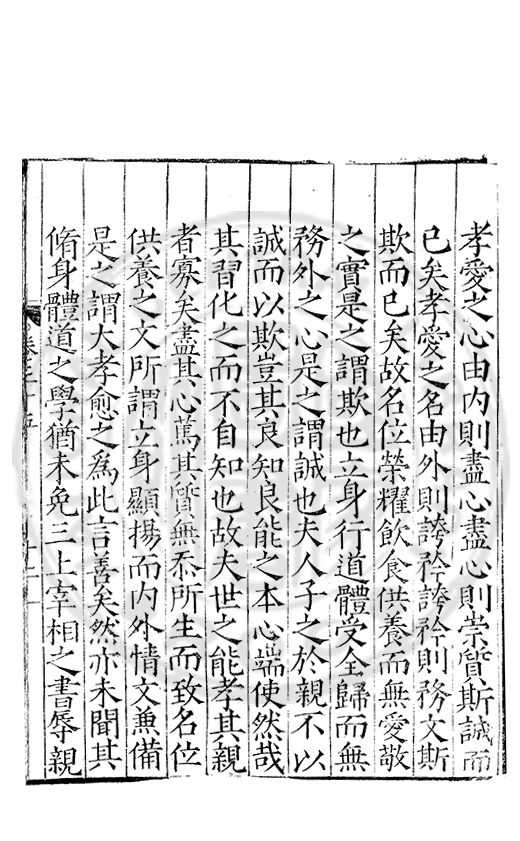 孝愛之心由内則盡心盡心則崇質斯誠而
已矣孝愛之名由外則誇矜誇矜則務文斯
欺而已矣故名位榮耀飲食供養而無愛敬
之實是之謂欺也立身行道體受全歸而無
務外之心是之謂誠也夫人子之於親不以
誠而以欺豈其良知良能之本心端使然哉
其習化之而不自知也故夫世之能孝其親
者寡矣盡其心篤其質無忝所生而致名位
供養之文所謂立身顯揚而内外情文兼備
是之謂大孝愈之爲此言善矣然亦未聞其
脩身體道之學猶未免三上宰相之書辱親
卷三十五